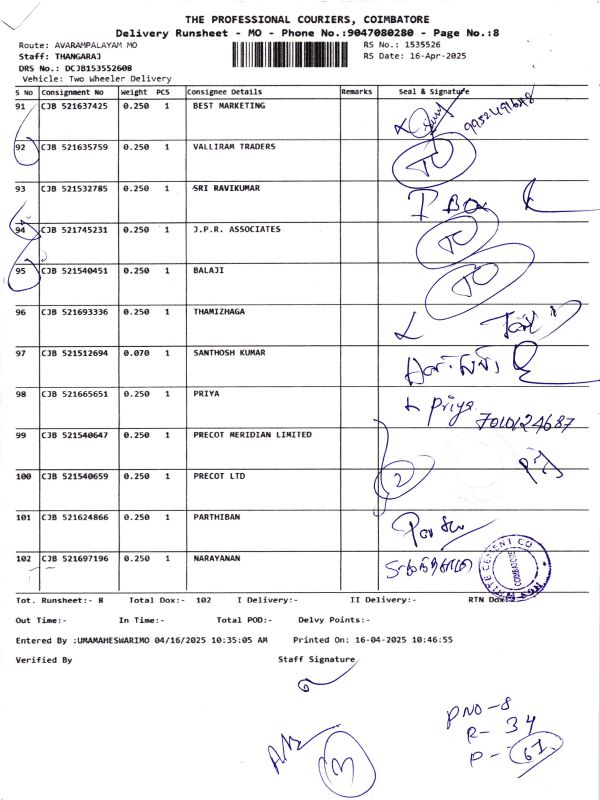 THE PROFESSIONAL COURIERS, COIMBATORE
Delivery Runsheet - MO - Phone No.:9047080280 - Page No.:8
Route: AVARAMPALAYAM MO
RS No.: 1535526
Staff: THANGARAJ
RS Date: 16-Apr-2025
DRS No.: DCJB153552608
Vehicle: Two Wheeler Delivery
S No Consignment No Weight PCS Consignee Details Remarks Seal & Signature
91 CJB 521637425 0.250 1 BEST MARKETING
92 CJB 521635759 0.250 1 VALLIRAM TRADERS
93 CJB 521532785 0.250 1 SRI RAVIKUMAR
94 CJB 521745231 0.250 1 J.P.R. ASSOCIATES
95 CJB 521540451 0.250 1 BALAJI
96 CJB 521693336 0.250 1 THAMIZHAGA
97 CJB 521512694 0.070 1 SANTHOSH KUMAR
98 CJB 521665651 0.250 1 PRIYA Priya 7010124687
99 CJB 521540647 0.250 1 PRECOT MERIDIAN LIMITED
100 CJB 521540659 0.250 1 PRECOT LTD 2
101 CJB 521624866 0.250 1 PARTHIBAN
102 CJB 521697196 0.250 1 NARAYANAN
Tot. Runsheet:- 8 Total Dox:- 102 I Delivery:- II Delivery:- RTN Dox:-
Out Time:- In Time:- Total POD:- Delvy Points:-
Entered By :UMAMAHESWARIMO 04/16/2025 10:35:05 AM Printed On: 16-04-2025 10:46:55
Verified By Staff Signature
PNO-8
R- 34
P- 67